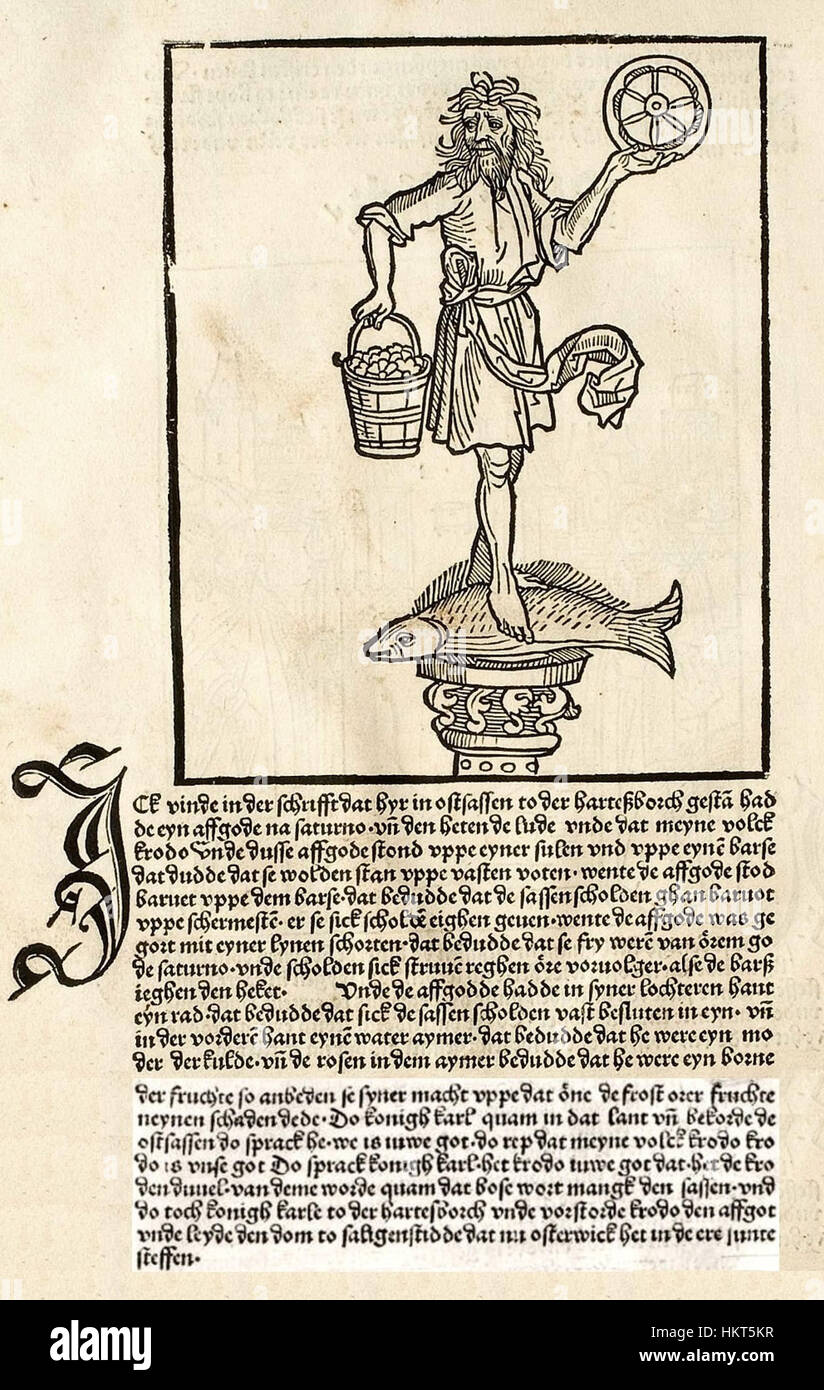 ICk vinde in der schrifft dat hyr in ostsassen to der harteßborch gestā had
de eyn affgode na saturno·vn̄ den heten de lude vnde dat meyne volck
krodo Vnde dusse affgode stond vppe eyner sulen vnd vppe eynē barse
dat dudde dat se wolden stan vppe vasten voten·wente de affgode stod
baruet vppe dem barse·dat bedudde dat de sassen scholden ghan baruot
vppe schermestē·er se sick scholdē eighen geuen·wente de affgode was ge
gort mit eyner lynen schorten·dat bedudde dat se fry werē van örem go
de saturno·vnde scholden sick struuē ieghen öre voruolger·alse de barß
ieghen den heket· Vnde de affgodde hadde in syner lochteren hant
eyn rad·dat bedudde dat sick de sassen scholden vast besluten in eyn·vn̄
in der vorderē hant eynē water aymer·dat bedudde dat he were eyn mo
der der kulde·vn̄ de rosen in dem aymer bedudde dat he were eyn borne
der fruchte so anbeden se syner macht vppe dat öne de frost orer fruchte
neynen schaden dede·Do konigh karl quam in dat lant vn̄ bekorde de
ostsassen do sprack he·we is iuwe got·do rep dat meyne volck krodo kro
do is vnse got Do sprack konigh karl·het krodo iuwe got dat·het de kro
den duuel·van deme worde quam dat bose wort mangk den sassen·vnd
do toch konigh karle to der hartesborch vnde vorstorde krodo den affgot
vnde leyde den dom to saligenstidde dat nu osterwick het in de ere sunte
steffen·
alamy
Image ID: HKT5KR
www.alamy.com